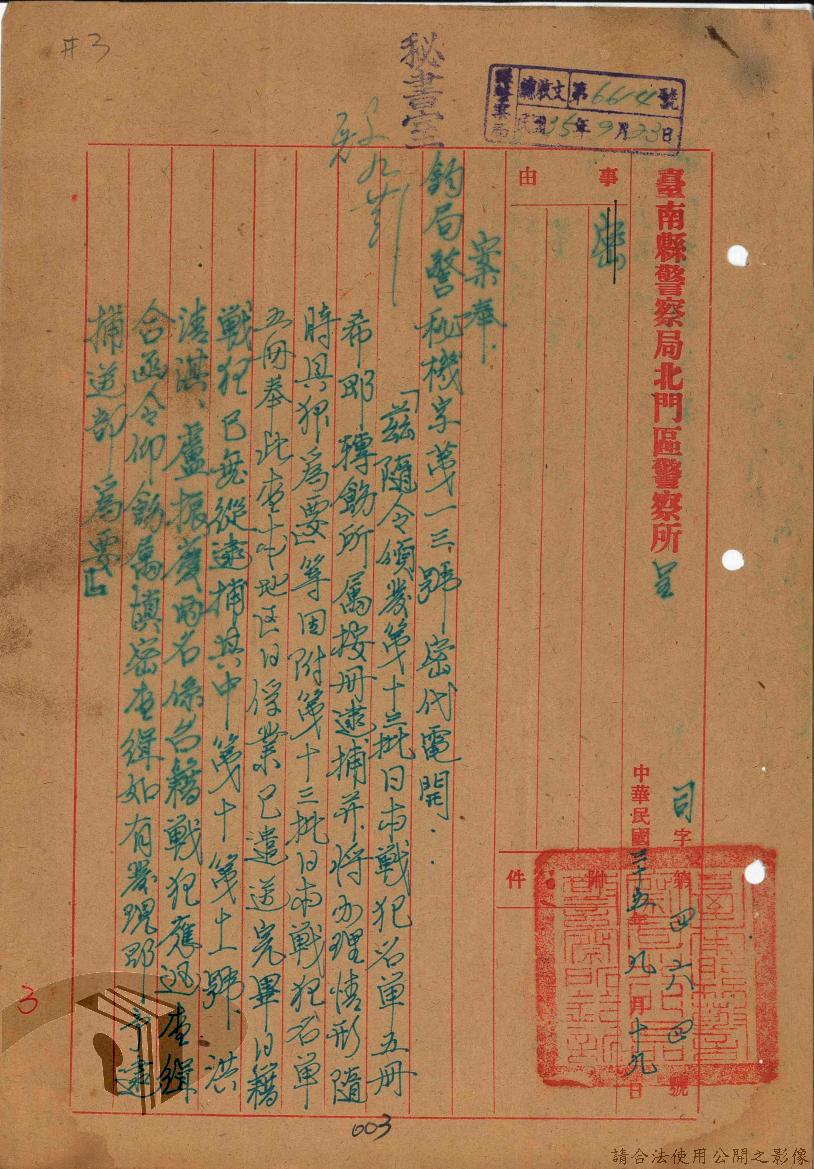 井3
秘書室
縣警察局 總收文 第6614號
民國35年9月23日
臺南縣警察局北門區警察所 呈
司字第四六四號
中華民國三十五年九月十九日
事由
密
附件
案奉
鈞局警秘機字第一三號密代電開：
「茲隨令頒發第十三批日本戰犯名單五冊
希即轉飭所屬按冊逮捕并將办理情形隨
時具报為要」等因附第十三批日本戰犯名單
五冊奉此查本地区日俘業已遣送完畢日籍
戰犯已無從逮捕其中第十第十一號洪
清淇、盧振賓兩名係台籍戰犯應迅查緝
合亟令仰飭屬慎密查緝如有發現即予逮
捕送部為要」
3
003
請合法使用公開之影像